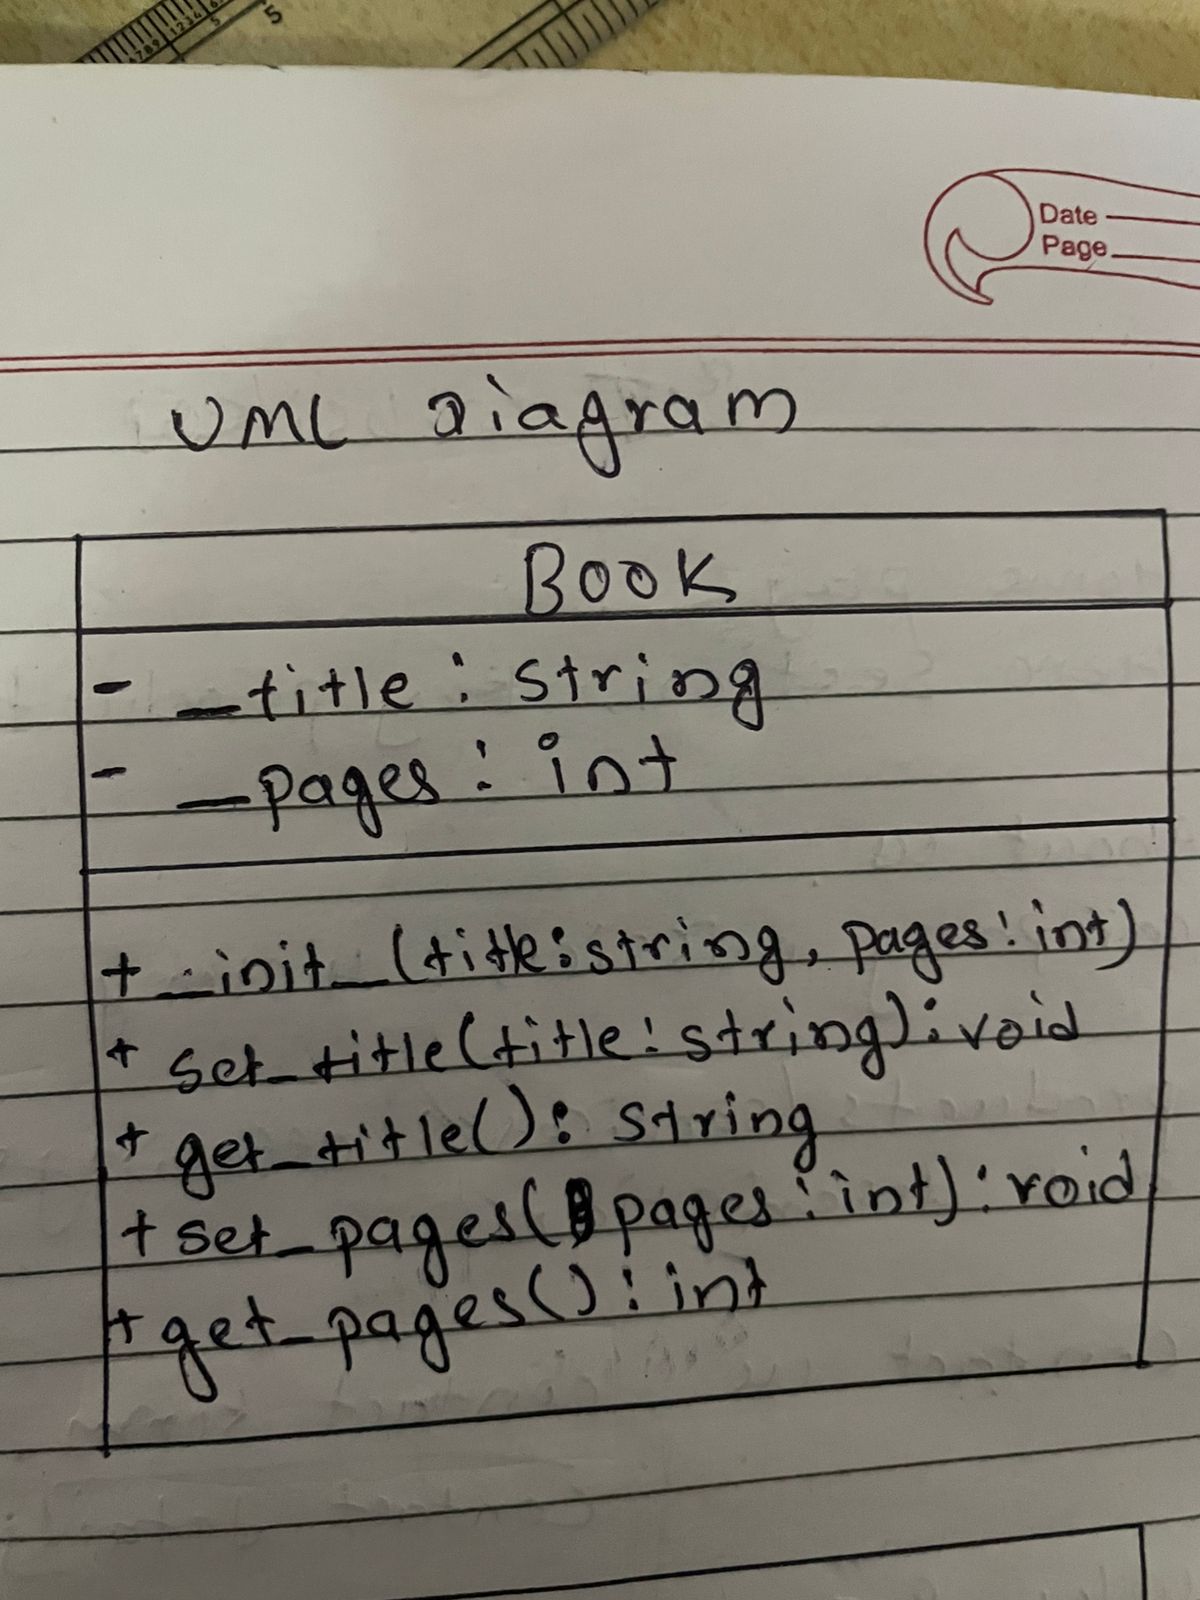 5
Date
Page
UML Diagram
BOOK
- __title : string
- __pages : int
+ __init__(title:string, pages:int)
+ set_title(title:string):void
+ get_title(): string
+ set_pages(pages:int):void
+ get_pages():int